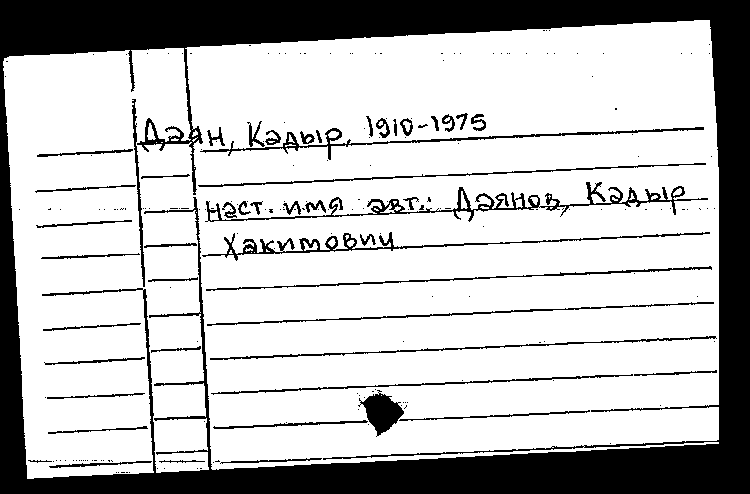 Даян, Кадыр, 1910-1975
наст. имя авт.: Даянов, Кадыр
Хакимович